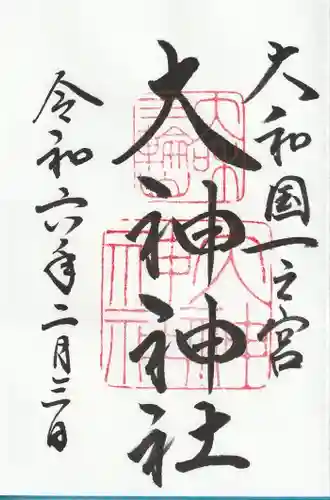 大和国一之宮
大神神社
令和六年二月三日